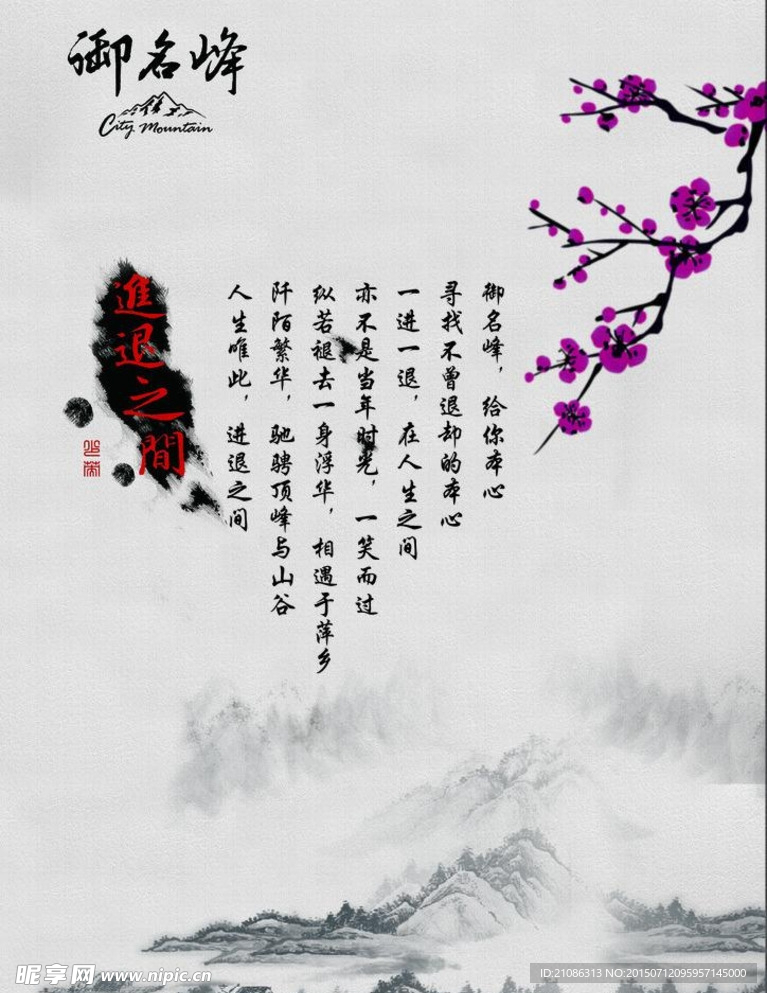 御名峰
City Mountain
御名峰，给你本心
寻找不曾退却的本心
一进一退，在人生之间
亦不是当年时光，一笑而过
纵若褪去一身浮华，相遇于萍乡
阡陌繁华，驰骋顶峰与山谷
人生唯此，进退之间
進退之間
昵享网 www.nipic.cn
ID:21086313 NO:20150712095957145000